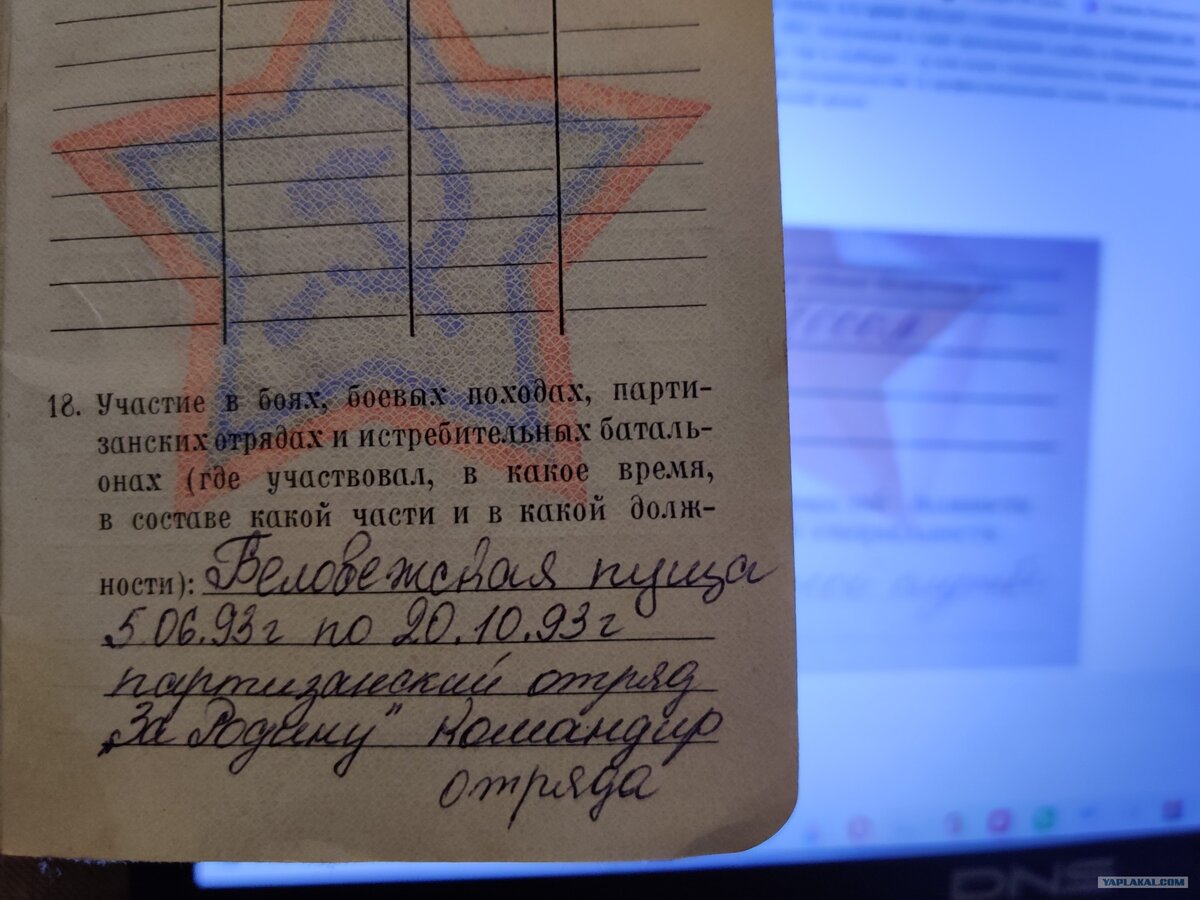 18. Участие в боях, боевых походах, парти-
занских отрядах и истребительных баталь-
онах (где участвовал, в какое время,
в составе какой части и в какой долж-
ности): Беловежская пуща
5.06.93г по 20.10.93г
партизанский отряд
„За Родину" командир
отряда
DNS
YAPLAKAL.COM